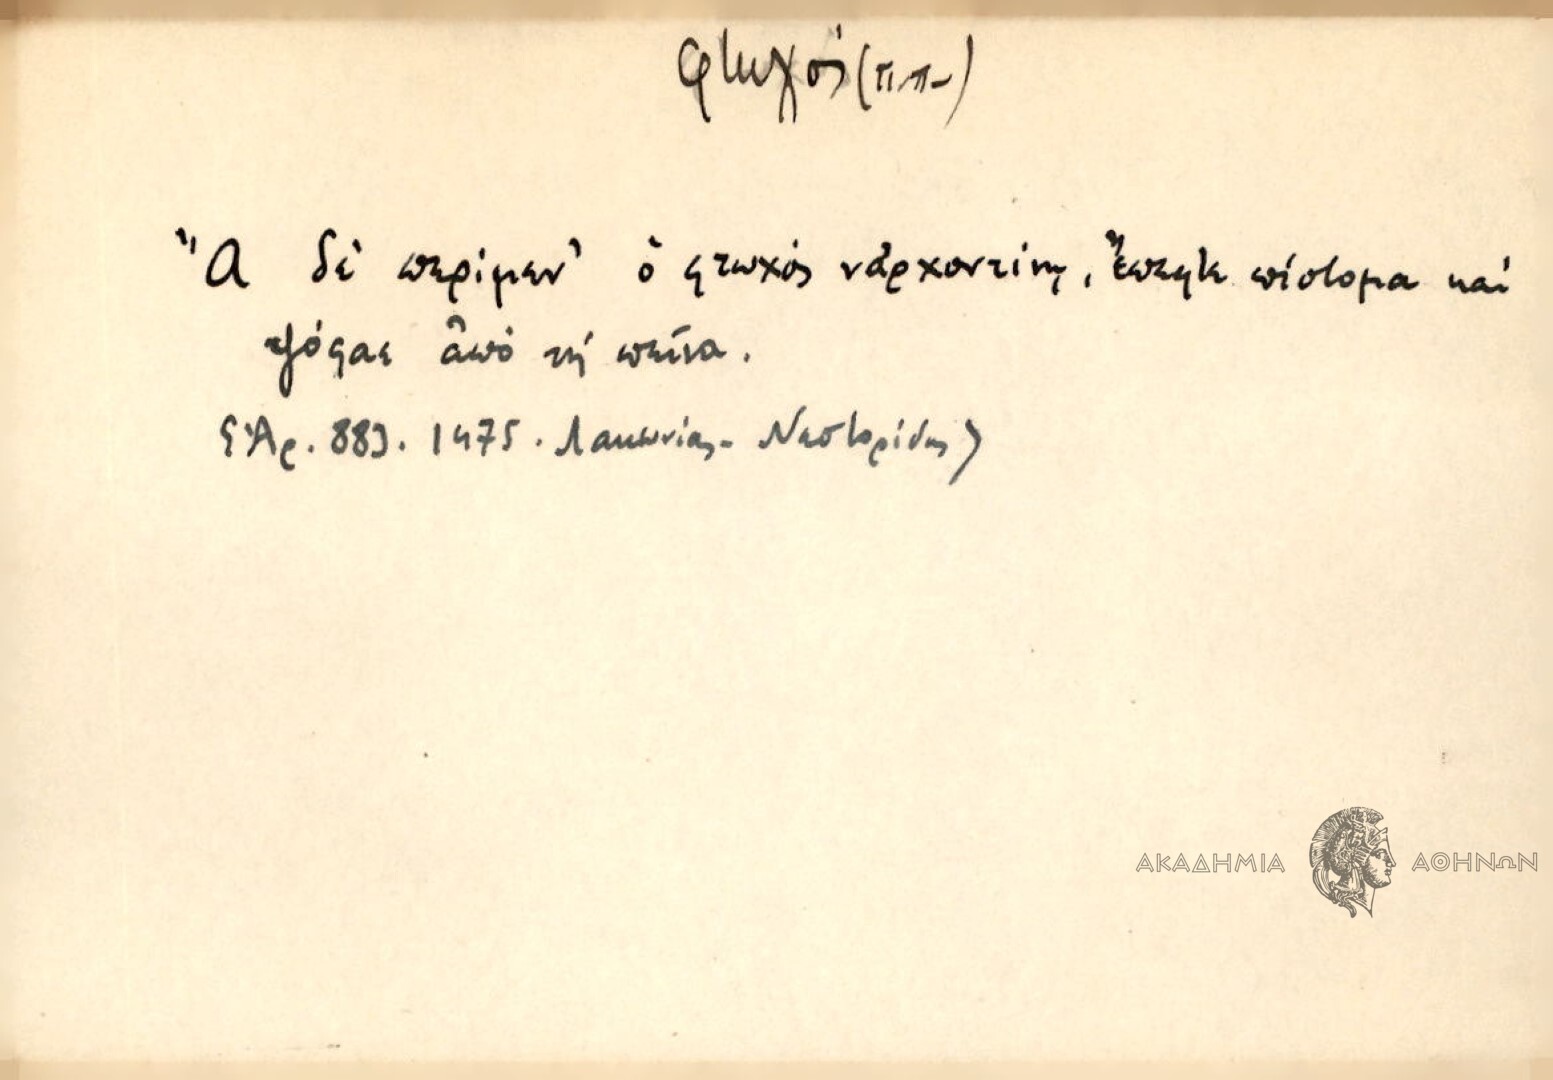 φτωχός (π.π.)
Ἂ δὲ περίμεν' ὁ φτωχὸς νἀρχοντίνῃ, ἔπεφτε πίστομα καὶ
ψόφαε ἀπὸ τὴ πεῖνα.
(Ἀρ. 883. 1475. Λακωνίας - Νεστορίδης)
ΑΚΑΔΗΜΙΑ ΑΘΗΝΩΝ